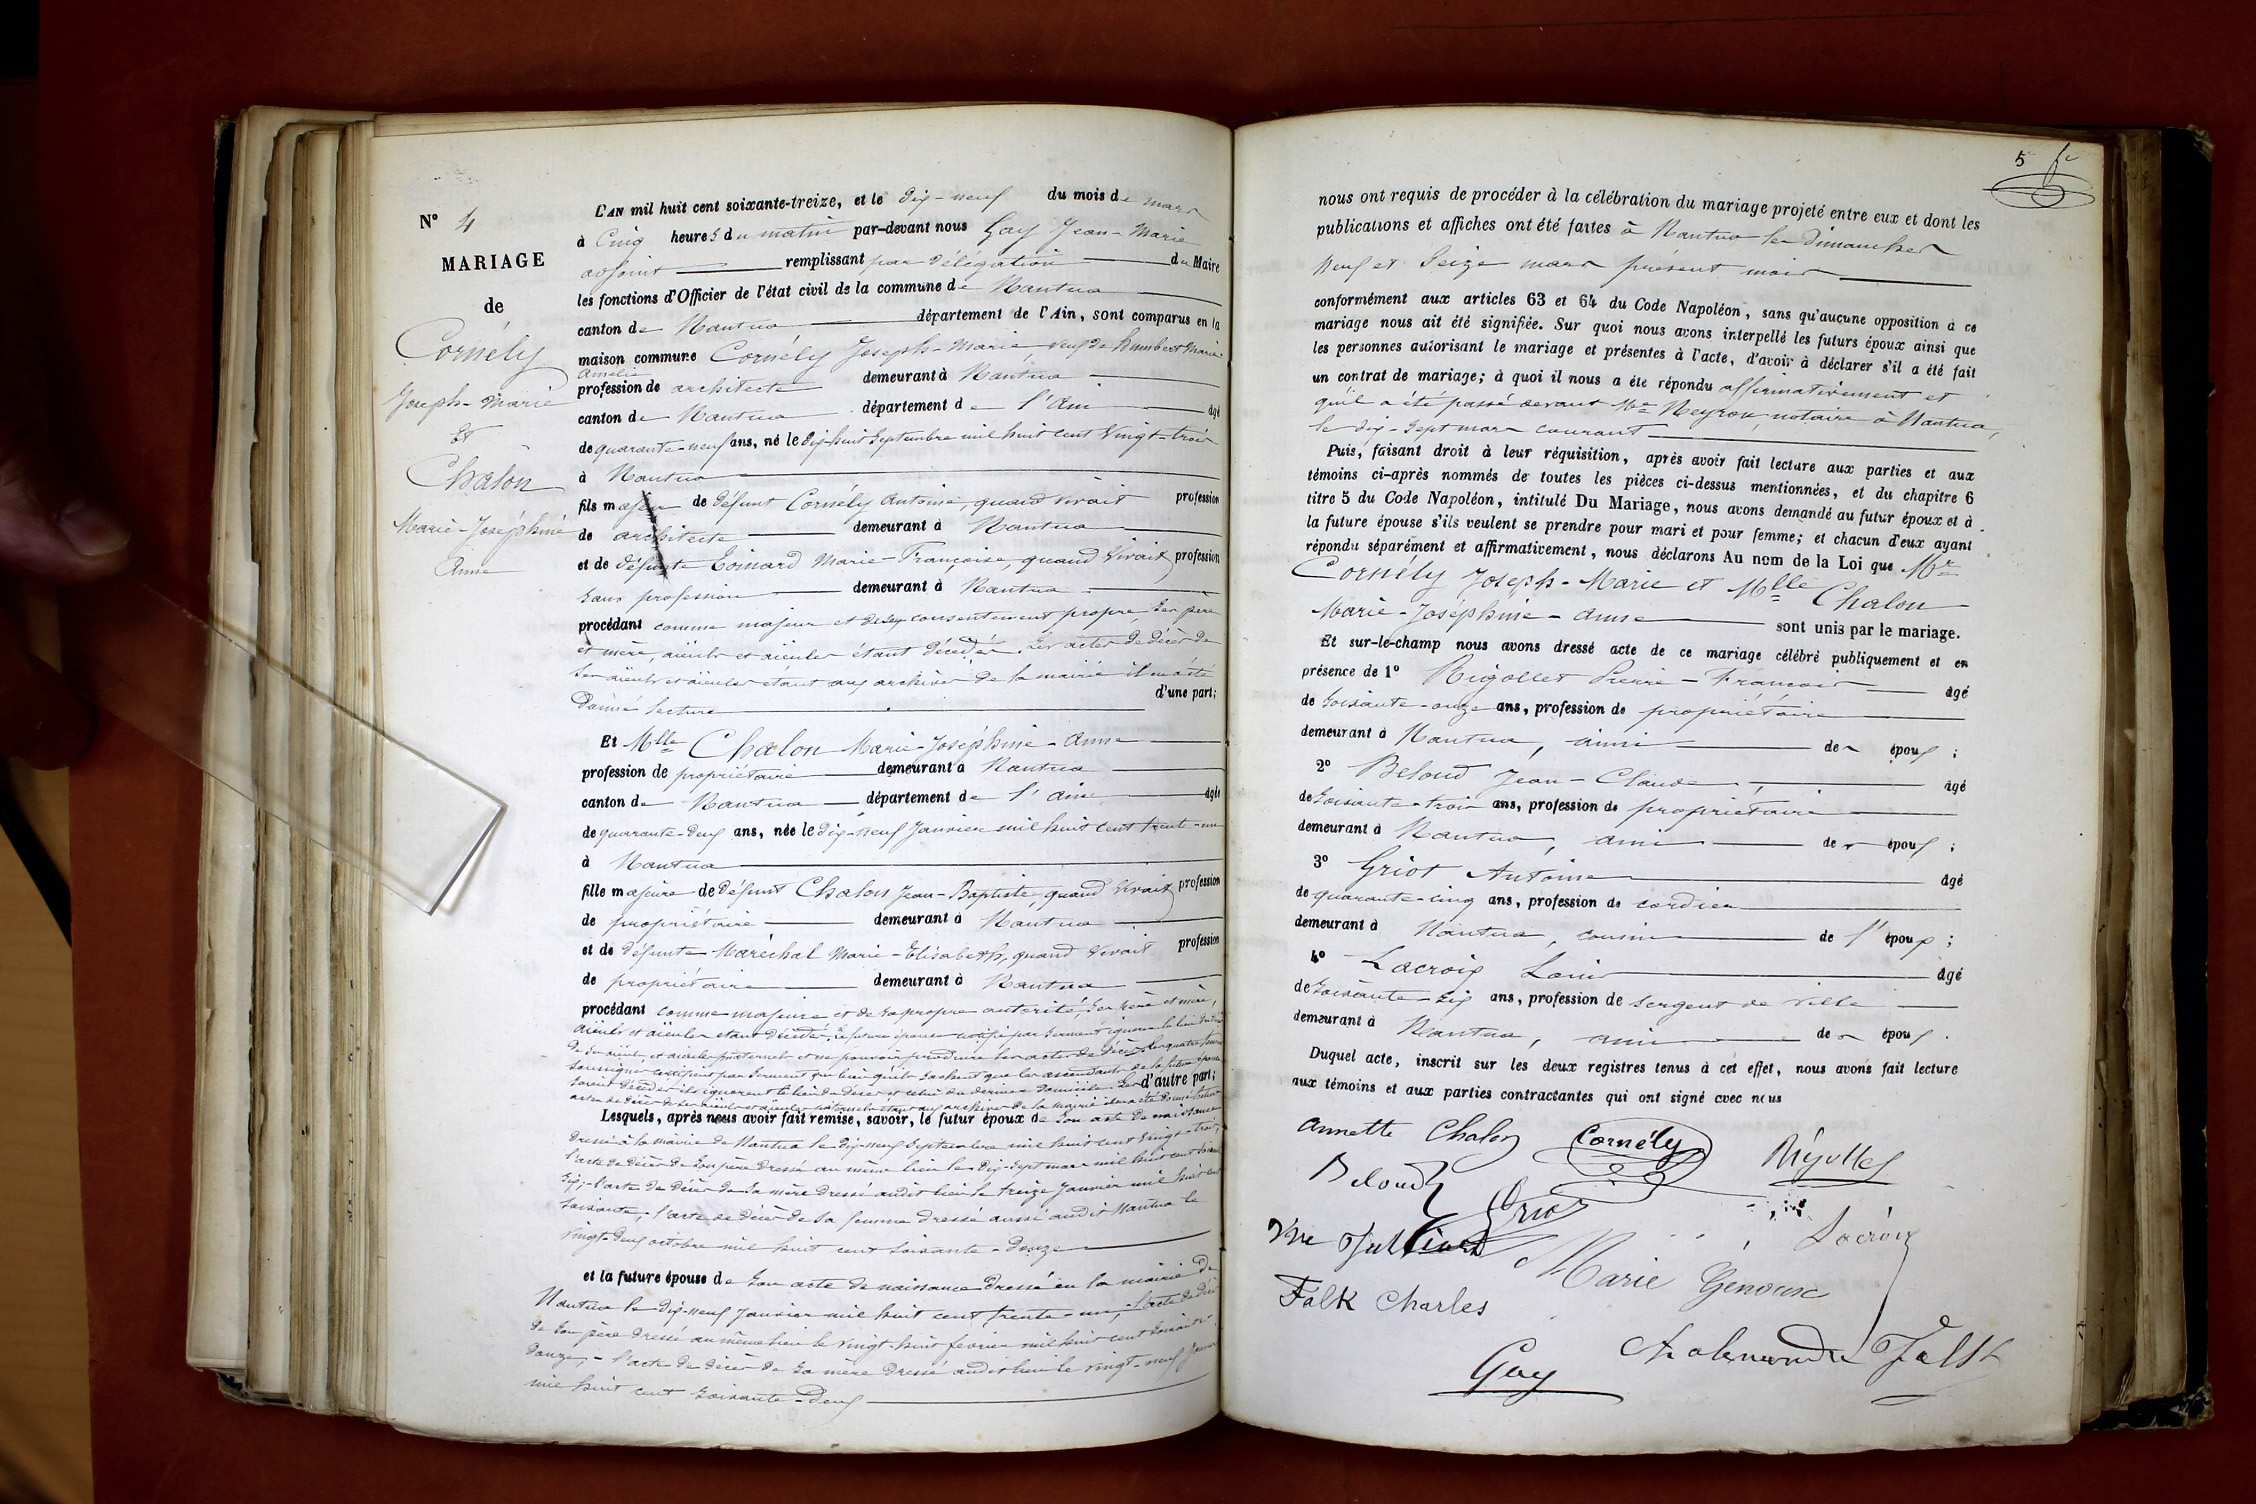 N° 4
MARIAGE
de
Cornély
Joseph-Marie
Et
Chalon
Marie-Joséphine
Anne
L'AN mil huit cent soixante-treize, et le Dix-neuf du mois de mars
à Cinq heures du matin par-devant nous Gay Jean-Marie
adjoint remplissant par délégation du Maire
les fonctions d'Officier de l'état civil de la commune de Nantua
canton de Nantua département de l'Ain, sont comparus en la
maison commune Cornély Joseph-Marie veuf de Humbert Marie
Amélie
profession de architecte demeurant à Nantua
canton de Nantua département de l'Ain âgé
de quarante-neuf ans, né le dix-huit Septembre mil huit cent vingt-trois
à Nantua
fils majeur de défunt Cornély Antoine, quand vivait profession
de architecte demeurant à Nantua
et de défunte Goinard Marie-Françoise, quand vivait profession
sans profession demeurant à Nantua
procédant comme majeur et de son consentement propre, ses père
et mère, aïeuls et aïeules étant décédés. Les actes de décès de
ses aïeuls et aïeules étant aux archives de la mairie il m'a été
donné lecture d'une part;
Et Mlle Chalon Marie-Joséphine-Anne
profession de propriétaire demeurant à Nantua
canton de Nantua département de l'Ain âgée
de quarante-deux ans, née le dix-neuf Janvier mil huit cent trente-un
à Nantua
fille majeure de défunt Chalon Jean-Baptiste, quand vivait profession
de propriétaire demeurant à Nantua
et de défunte Maréchal Marie-Elisabeth, quand vivait profession
de propriétaire demeurant à Nantua
procédant comme majeure et de sa propre autorité, ses père et mère,
aïeuls et aïeules étant décédés. La future épouse certifie par serment ignorer le lieu du décès
de ses aïeuls et aïeules maternels et ne pouvoir produire les actes de décès. Les quatre témoins
soussignés certifient par serment que bien qu'ils sachent que les ascendants de la future épouse
soient décédés ils ignorent le lieu du décès et celui du dernier domicile. Les d'autre part;
actes de décès de ses aïeuls et aïeules paternels étant aux archives de la mairie il m'a été donné lecture
Lesquels, après nous avoir fait remise, savoir, le futur époux de son acte de naissance
dressé à la mairie de Nantua le dix-neuf Septembre mil huit cent vingt-trois;
l'acte de décès de son père dressé au même lieu le dix-sept mars mil huit cent
six; l'acte de décès de sa mère dressé audit lieu le treize Janvier mil huit cent
soixante; l'acte de décès de sa femme dressé aussi audit Nantua le
vingt-deux octobre mil huit cent soixante-douze
et la future épouse de son acte de naissance dressé en la mairie de
Nantua le dix-neuf Janvier mil huit cent trente-un; l'acte de décès
de son père dressé au même lieu le vingt-huit février mil huit cent soixante-
douze; l'acte de décès de sa mère dressé audit lieu le vingt-neuf Janvier
mil huit cent soixante-deux
5
nous ont requis de procéder à la célébration du mariage projeté entre eux et dont les
publications et affiches ont été faites à Nantua les dimanches
Neuf et Seize mars présent mois
conformément aux articles 63 et 64 du Code Napoléon, sans qu'aucune opposition à ce
mariage nous ait été signifiée. Sur quoi nous avons interpellé les futurs époux ainsi que
les personnes autorisant le mariage et présentes à l'acte, d'avoir à déclarer s'il a été fait
un contrat de mariage; à quoi il nous a été répondu affirmativement et
qu'il a été passé devant Me Neyron, notaire à Nantua,
le dix-sept mars courant
Puis, faisant droit à leur réquisition, après avoir fait lecture aux parties et aux
témoins ci-après nommés de toutes les pièces ci-dessus mentionnées, et du chapitre 6
titre 5 du Code Napoléon, intitulé Du Mariage, nous avons demandé au futur époux et à
la future épouse s'ils veulent se prendre pour mari et pour femme; et chacun d'eux ayant
répondu séparément et affirmativement, nous déclarons Au nom de la Loi que Mr
Cornély Joseph-Marie et Mlle Chalon
Marie-Joséphine-Anne sont unis par le mariage.
Et sur-le-champ nous avons dressé acte de ce mariage célébré publiquement et en
présence de 1° Rigollet Pierre-François âgé
de soixante-onze ans, profession de propriétaire
demeurant à Nantua, ami des époux;
2° Beloud Jean-Claude, âgé
de soixante-trois ans, profession de propriétaire
demeurant à Nantua, ami des époux;
3° Griot Antoine âgé
de quarante-cinq ans, profession de cordier
demeurant à Nantua, cousin de l'époux;
4° Lacroix Louis âgé
de soixante-six ans, profession de sergent de ville
demeurant à Nantua, ami des époux.
Duquel acte, inscrit sur les deux registres tenus à cet effet, nous avons fait lecture
aux témoins et aux parties contractantes qui ont signé avec nous
Annette Chalon Cornély Rigollet
Beloud Griot
Lacroix
Marie Genoux
Falk Charles
Gay